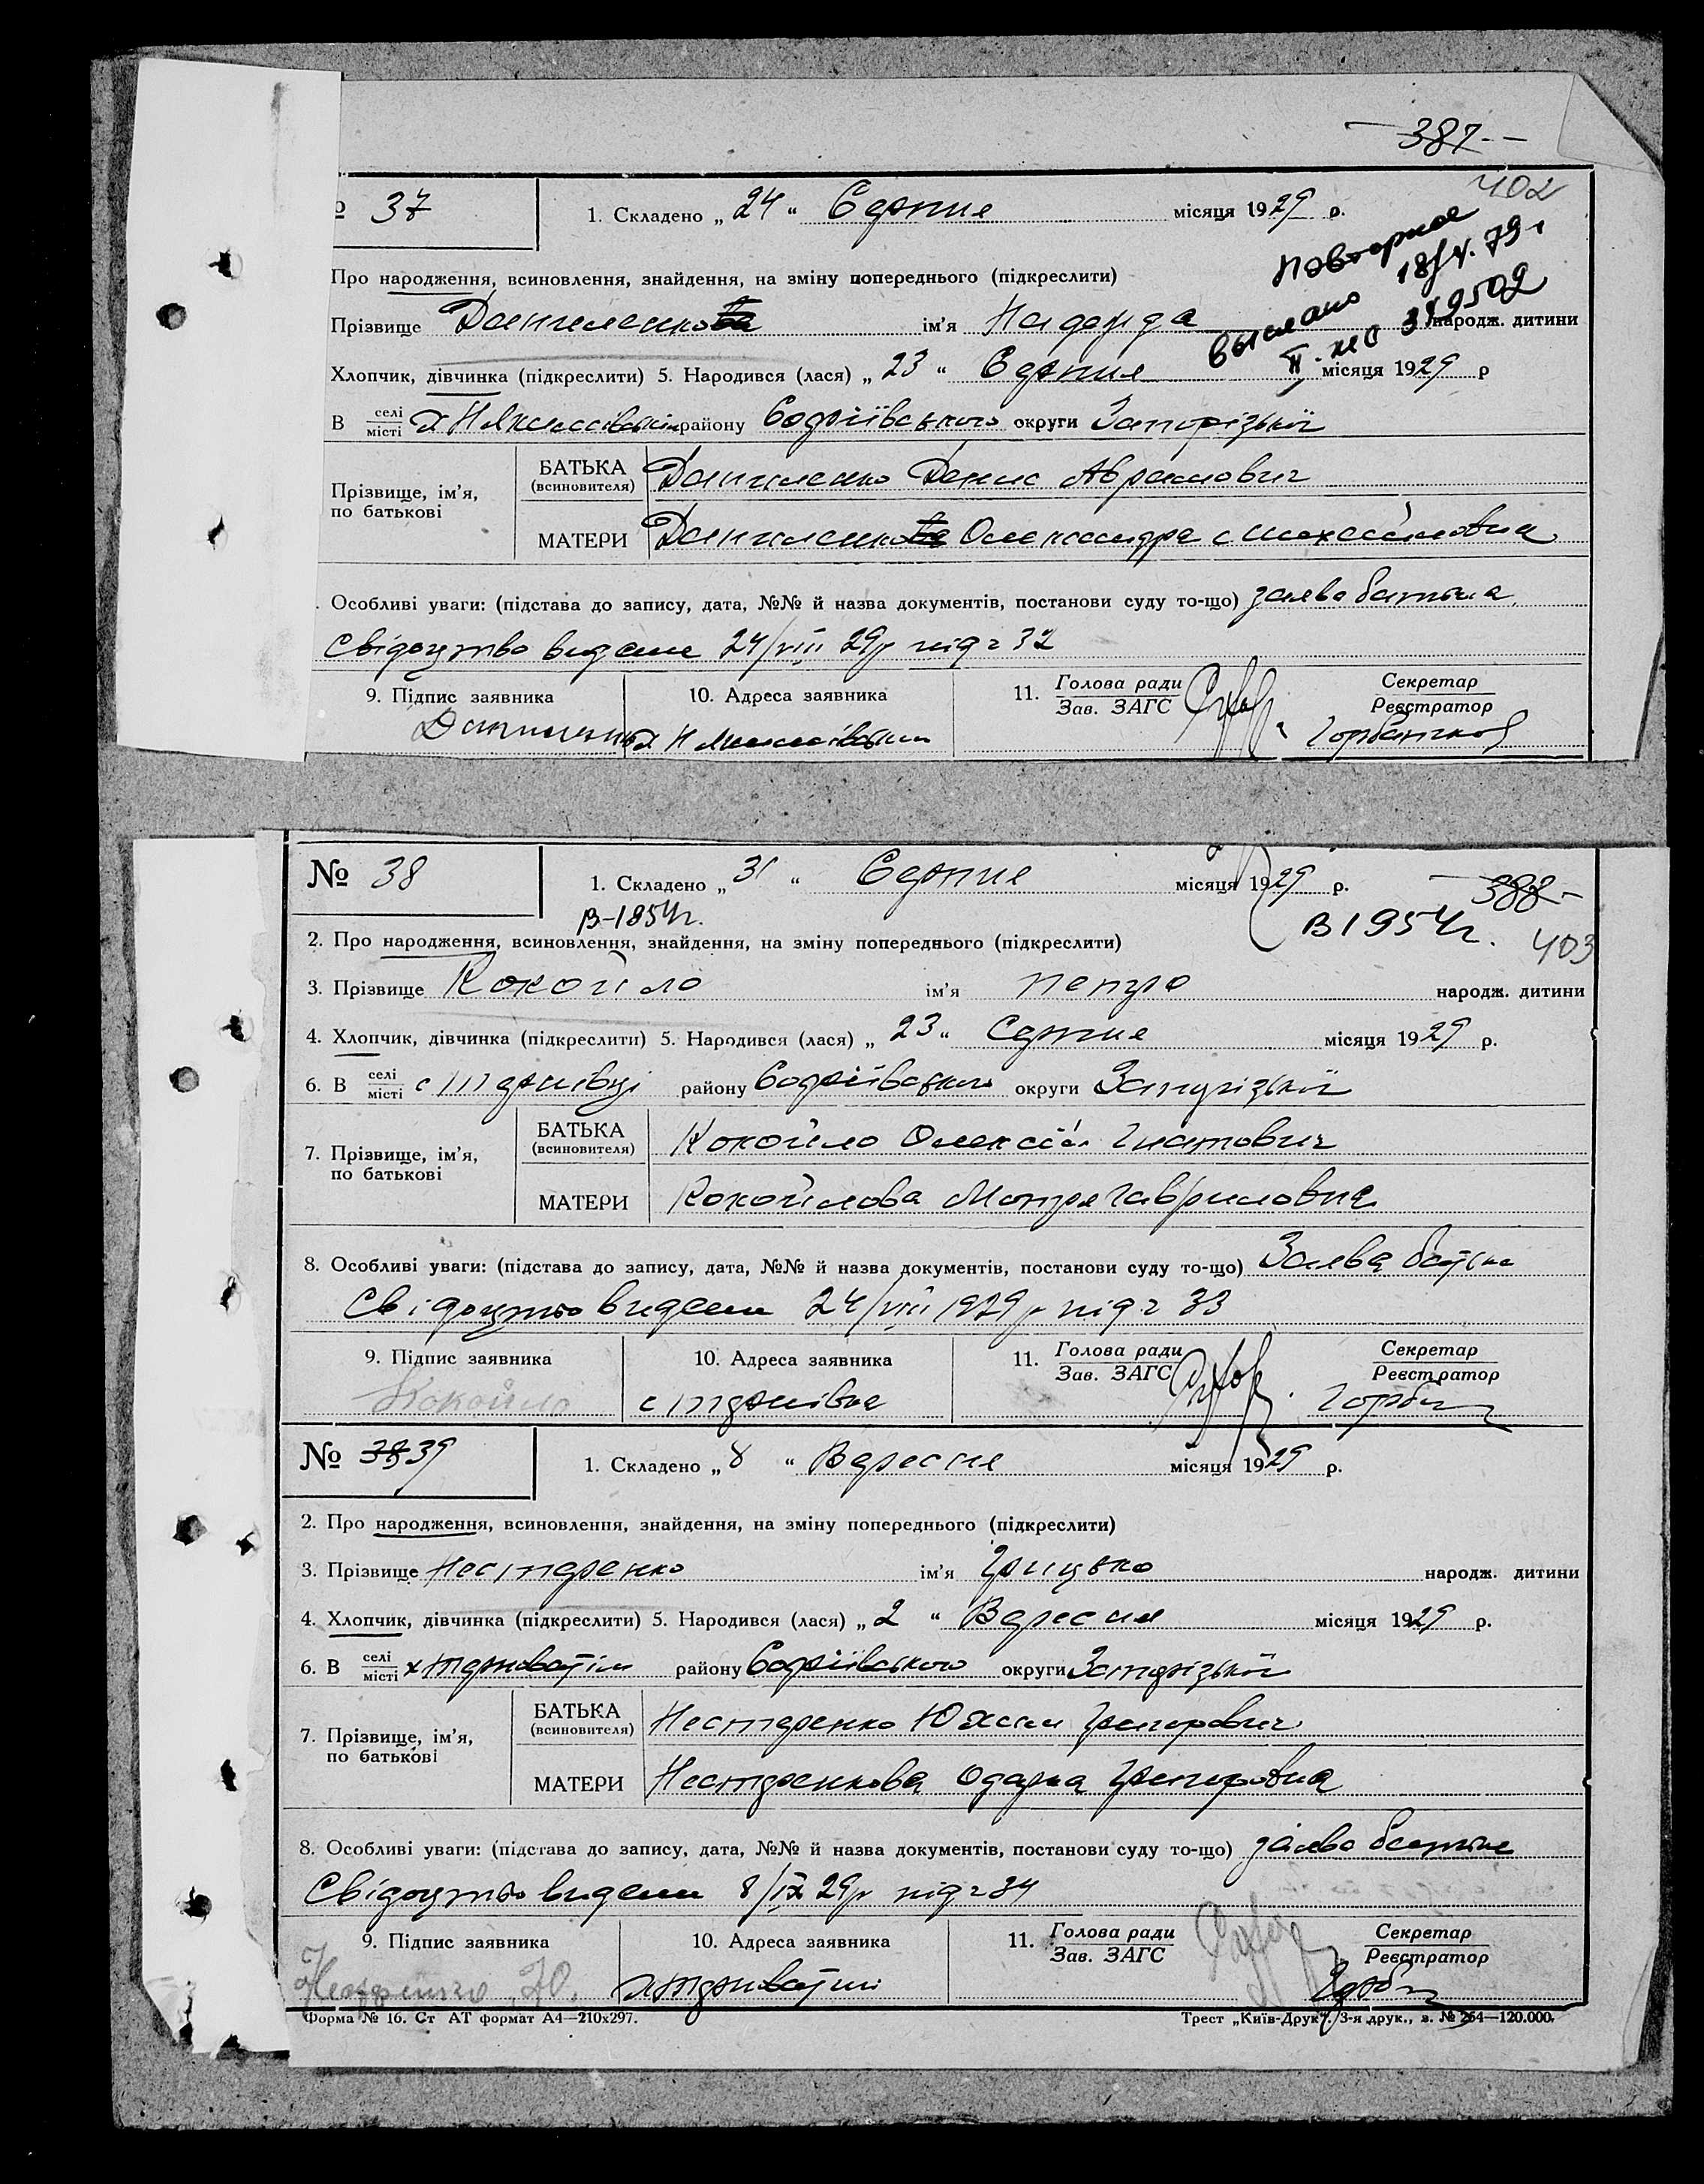 387
402
37
1. Складено „ 24 “ Серпня місяця 1929 р.
Повторное
18/V. 79.
выслано
319502
Про народження, всиновлення, знайдення, на зміну попереднього (підкреслити)
Прізвище Даниленко ім'я Надежда народж. дитини
Хлопчик, дівчинка (підкреслити) 5. Народився (лася) „ 23 “ Серпня місяця 1929 р
В селі місті району Софіївського округи Запорізької
Прізвище, ім'я, по батькові
БАТЬКА (всиновителя) Даниленко Денис Абрамович
МАТЕРИ Даниленко Олександра
. Особливі уваги: (підстава до запису, дата, №№ й назва документів, постанови суду то-що) заява батька
Свідоцтво видане 24/VIII 29р під ч 32
9. Підпис заявника
10. Адреса заявника
11. Голова ради Зав. ЗАГС
Секретар Реєстратор
№ 38
1. Складено „ 31 “ Серпня місяця 1929 р.
388
В-1954г.
В 1954г.
403
2. Про народження, всиновлення, знайдення, на зміну попереднього (підкреслити)
3. Прізвище Кокойло ім'я Петро народж. дитини
4. Хлопчик, дівчинка (підкреслити) 5. Народився (лася) „ 23 “ Серпня місяця 1929 р.
6. В селі місті с району Софіївського округи Запорізької
7. Прізвище, ім'я, по батькові
БАТЬКА (всиновителя) Кокойло Олексій Гнатович
МАТЕРИ Кокойлова Мотря Гавриловна
8. Особливі уваги: (підстава до запису, дата, №№ й назва документів, постанови суду то-що) Заява батька
Свідоцтво видане 24/VIII 1929р під ч 33
9. Підпис заявника
Кокойло
10. Адреса заявника
11. Голова ради Зав. ЗАГС
Секретар Реєстратор
№ 39
1. Складено „ 8 “ Вересня місяця 1929 р.
2. Про народження, всиновлення, знайдення, на зміну попереднього (підкреслити)
3. Прізвище Нестеренко ім'я Грицько народж. дитини
4. Хлопчик, дівчинка (підкреслити) 5. Народився (лася) „ 2 “ Вересня місяця 1929 р.
6. В селі місті району Софіївського округи Запорізької
7. Прізвище, ім'я, по батькові
БАТЬКА (всиновителя) Нестеренко Юхим Григорович
МАТЕРИ Нестеренкова Одарка Григоровна
8. Особливі уваги: (підстава до запису, дата, №№ й назва документів, постанови суду то-що) заява батька
Свідоцтво видане 8/IX 29р під ч 34
9. Підпис заявника
10. Адреса заявника
11. Голова ради Зав. ЗАГС
Секретар Реєстратор
Форма № 16. Ст АТ формат А4—210х297.
Трест „Київ-Друк“. 3-я друк., з. № 264—120.000.